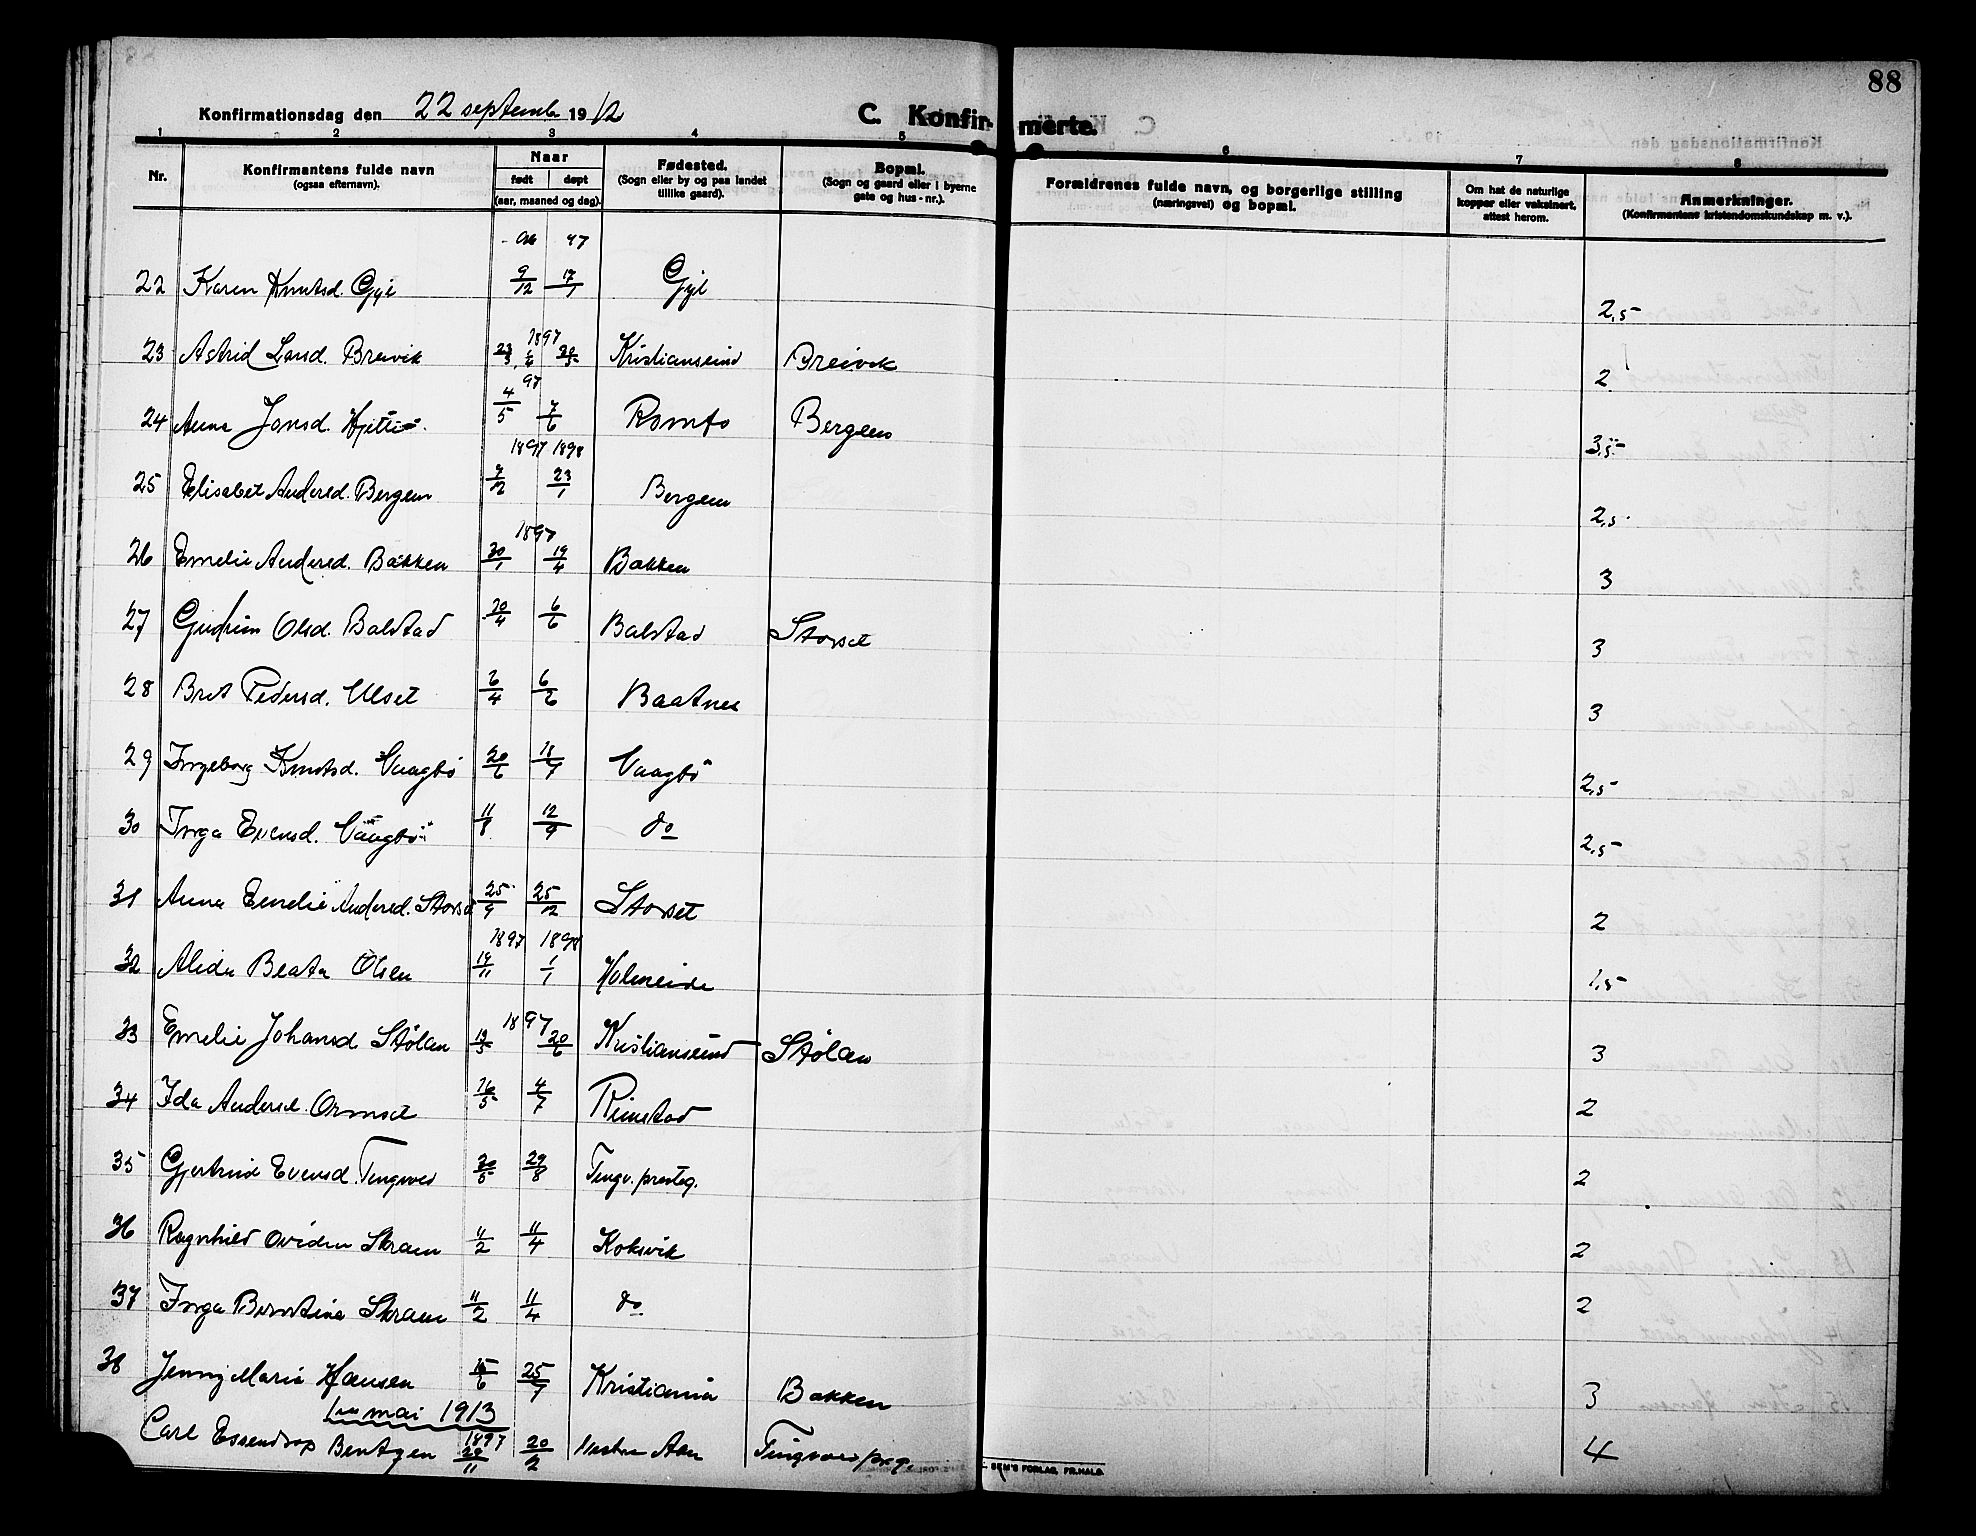 88
Konfirmationsdag den 22 septemb 1912
C. Konfirmerte.
1 2 3 4 5 6 7 8
Nr. Konfirmantens fulde navn (ogsaa efternavn). Naar født døpt (aar, maaned og dag). Fødested. (Sogn eller by og paa landet tillike gaard). Bopæl. (Sogn og gaard eller i byerne gate og hus-nr.). Forældrenes fulde navn, og borgerlige stilling (næringsvei) og bopæl. Om hat de naturlige kopper eller vaksinert, attest herom. Anmerkninger. (Konfirmantens kristendomskundskap m. v.).
96 97
22 Karen Knutsd. Gyl 9/12 17/1 Gyl 2,5
1897
23 Astrid Larsd. Breivik 30/5 Kristiansund Breivik 2
97
24 Anna Jonsd. 4/5 7/6 Romfo Bergem 3,5
1897 1898
25 Elisabet Andersd. Bergem 7/12 23/1 Bergem 2,5
1897
26 Emelie Andersd. Bakken 30/1 19/4 Bakken 3
27 Gudrun Olsd. Balstad 20/4 6/6 Balstad Storset 3
28 Brit Pedersd. Ulset 6/4 6/6 Baatnes 3
29 Ingeborg Knutsd. Vaagbö 20/6 18/7 Vaagbö 2,5
30 Inga Evensd. Vaagbö 11/8 12/9 do 2,5
31 Anna Emelie Andersd. Storset 25/9 25/12 Storset 2
1897 1898
32 Alida Beata Olsen 19/11 1/1 Holmeide 1,5
1897
33 Emelie Johansd Stølan 13/5 20/6 Kristiansund Stølan 3
34 Ida Andersd. Ormset 16/5 4/7 Rimstad 2
35 Gjertrud Evensd. Tingvold 30/5 29/8 Tingv. presteg. 2
36 Ragnhild Ovidia Skram 11/2 11/4 Koksvik 2
37 Inga Berntine Skram 11/2 11/4 do 2
38 Jenny Marie Hansen 15/6 25/7 Kristiania Bakken 3
mai 1913
1897
Carl Essendrop Bentzen 29/11 20/2 Vestre Aker Tingvold prg. 4
SEM'S FORLAG, FR.HALD.